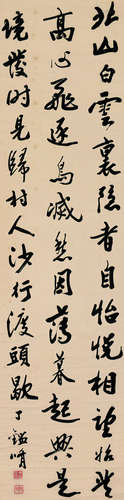 北山白雲裏隱者自怡悅相望始登
高心飛逐鳥滅愁因薄暮起興是
境發時見歸村人沙行渡頭歇